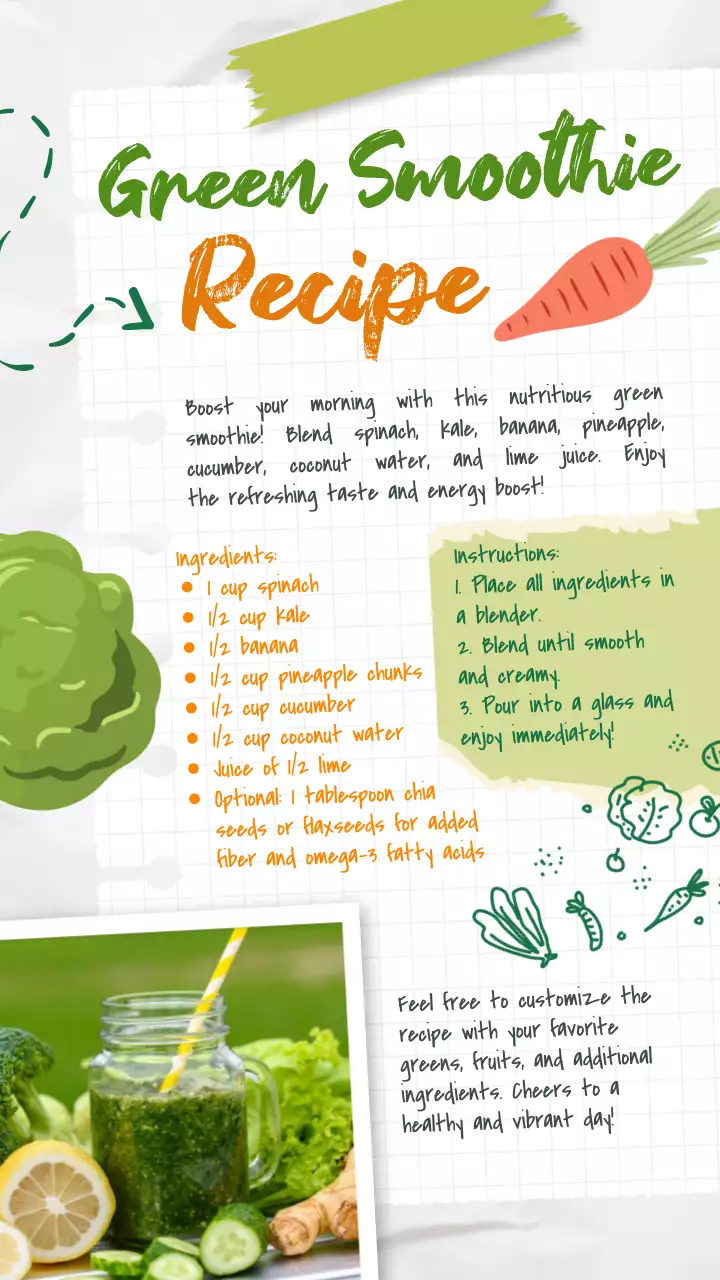 Green Smoothie
Recipe
Boost your morning with this nutritious green
smoothie! Blend spinach, kale, banana, pineapple,
cucumber, coconut water, and lime juice. Enjoy
the refreshing taste and energy boost!
Ingredients:
• 1 cup spinach
• 1/2 cup kale
• 1/2 banana
• 1/2 cup pineapple chunks
• 1/2 cup cucumber
• 1/2 cup coconut water
• Juice of 1/2 lime
• Optional: 1 tablespoon chia
seeds or flaxseeds for added
fiber and omega-3 fatty acids
Instructions:
1. Place all ingredients in
a blender.
2. Blend until smooth
and creamy.
3. Pour into a glass and
enjoy immediately!
Feel free to customize the
recipe with your favorite
greens, fruits, and additional
ingredients. Cheers to a
healthy and vibrant day!